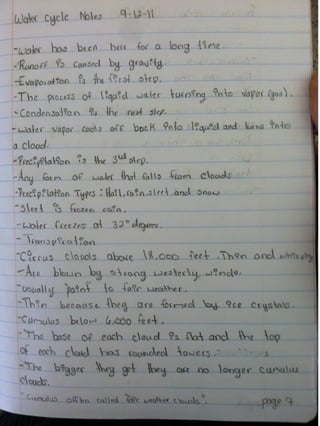 Water Cycle Notes 9-12-11
-Water has been here for a long time.
-Runoff is caused by gravity.
-Evaporation is the first step.
-The process of liquid water turning into vapor (gas).
-Condensation is the next step.
-Water vapor cools off back into liquid and turns into
a cloud.
-Precipitation is the 3rd step.
-Any form of water that falls from clouds
-Precipitation Types: Hail, rain, sleet and snow
-Sleet is frozen rain.
-Water freezes at 32° degrees.
-Transpiration
-Circus clouds above 18,000 feet. Thin and
-Are blown by strong westerly winds.
-usually point to fair weather.
-Thin because they are formed by ice crystals.
-Cumulus below 6,000 feet.
-The base of each cloud is flat and the top
of each cloud has rounded towers.
-The bigger they get they are no longer cumulus
clouds.
-Cumulus often called "fair weather clouds". page 7